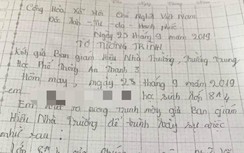 Cộng Hòa Xã Hội Chủ Nghĩa Việt Nam
Độc lập - Tự do - Hạnh phúc
Ngày 23 tháng 9 năm 2019
TỜ TƯỜNG TRÌNH
Kính gửi Ban giám Hiệu Nhà Trường, Trường Trung
học Phổ An Thạnh 3
Hôm nay, ngày 23 tháng 9 năm 2019
em học sinh lớp 8A4
Em tường trình này gửi Ban giám
Hiệu Nhà Trường để trình bày sự việc
như sau: